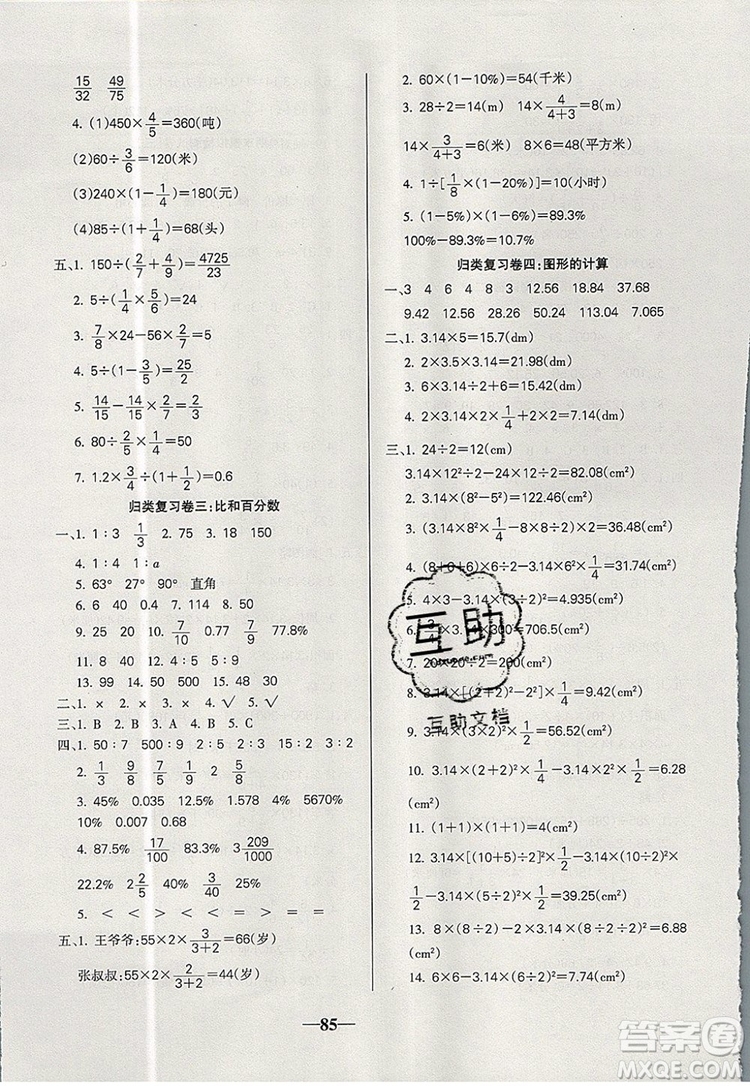 15/32 49/75
4. (1)450×4/5=360(吨)
(2)60÷3/6=120(米)
(3)240×(1−1/4)=180(元)
(4)85÷(1+1/4)=68(头)
五、1. 150÷(2/7+4/9)=4725/23
2. 5÷(1/4×5/6)=24
3. 7/8×24−56×2/7=5
4. 5÷(1−3/5)=25/2
5. 14/15−14/15×2/7=2/3
6. 80÷2/5×1/4=50
7. 1.2×3/4÷(1+1/2)=0.6
归类复习卷三:比和百分数
一、1. 1:3 1/3 2. 75 3. 18 150
4. 1:4 1:a
5. 63° 27° 90° 直角
6. 6 40 0.4 7. 114 8. 50
9. 25 20 10. 7/10 0.77 7/9 77.8%
11. 8 40 12. 4:5
13. 99 14. 500 15. 48 30
二、1. × 2. × 3. × 4. √ 5. √
三、1. B 2. B 3. A 4. B 5. C
四、1. 50:7 500:9 2:5 15:2 3:2
2. 1/9 8/9 1/8 9/8
3. 45% 0.035 12.5% 1.578 4 5670%
10% 0.007 140%
4. 87.5% 17/100 83.3% 3 209/1000
22.2% 2 2/5 40% 3/40 25%
5. < < < > = <
五、1. 王爷爷:55×2×3/(3+2)=66(岁)
张叔叔:55×2×2/(3+2)=44(岁)
2. 60×(1−10%)=54(千米)
3. 28÷2=14(m) 14×4/(4+3)=8(m)
14×3/(4+3)=6(米) 8×6=48(平方米)
4. 1÷[1/8×(1−20%)]=10(小时)
5. (1−5%)×(1−6%)=89.3%
100%−89.3%=10.7%
归类复习卷四:图形的计算
一、3 4 6 4 8 3 12.56 18.84 37.68
9.42 12.56 28.26 50.24 113.04 7.065
二、1. 3.14×5=15.7(dm)
2. 2×3.5×3.14=21.98(dm)
3. 6×3.14÷2+6=15.42(dm)
4. 2×3.14×2×1/4+2×2=7.14(dm)
三、1. 24÷2=12(cm)
3.14×12²×1/4−12×(12÷2)÷2=82.08(cm²)
2. 3.14×(9²−8²)÷2×1/2=26.69(cm²)
3. (3.14×8²×1/4−8×8÷2)×2=36.48(cm²)
4. (8+6+6)×6÷2−3.14×6²×1/4=31.74(cm²)
5. 4×3−3.14×(3²÷2)×1/2=4.935(cm²)
6. 3/4×3.14×300=706.5(cm²)
7. 20×20÷2=200(cm²)
8. 3.14×[
9. 3.14×(3×2)²×1/2=56.52(cm²)
10. 3.14×(2+2)²×1/4−3.14×2²×1/2=6.28
(cm²)
11. (1+1)×(1+1)=4(cm²)
12. 3.14×[(10+5)÷2]²×1/2−3.14×(10÷2)²
×1/2−3.14×(5÷2)²×1/2=39.25(cm²)
13. 8×(8÷2)−3.14×(8÷2)²×1/2=6.88
(cm²)
14. 6×6−3.14×(6÷2)²=7.74(cm²)
互助
互助文档
—85—
答案圈
MXQE.COM